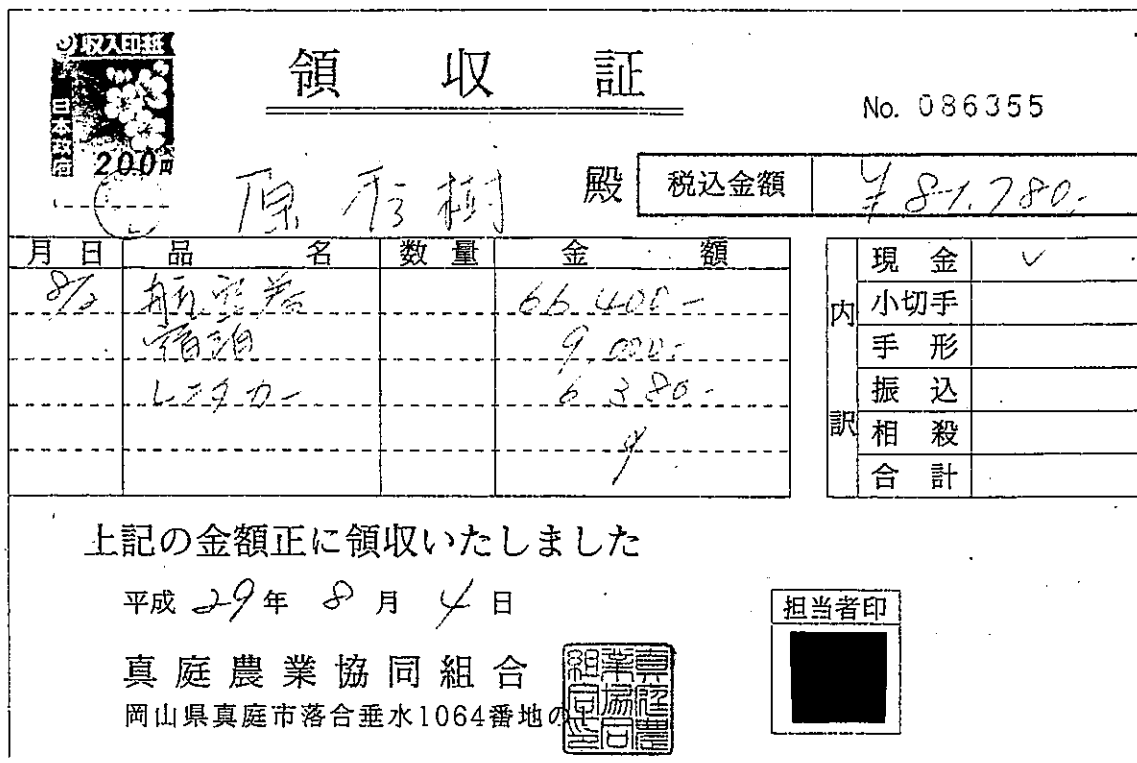 収入印紙
日本政府
200円
領収証
No. 086355
原秀樹 殿
税込金額 ¥81,780.-
月日 品名 数量 金額
8/2 航空券 66,400-
宿泊 9,000-
レンタカー 6,380-
内訳
現金 ✓
小切手
手形
振込
相殺
合計
上記の金額正に領収いたしました
平成 29年 8月 4日
担当者印
真庭農業協同組合
岡山県真庭市落合垂水1064番地の
真庭農業協同組合